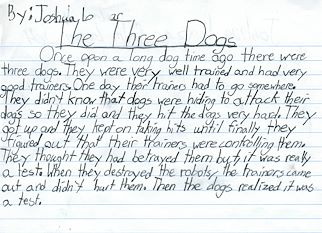 By: Joshua, 6
The Three Dogs
Once upon a long dog time ago there were
three dogs. They were very well trained and had very
good trainers. One day their trainers had to go somewhere.
They didn't know that dogs were hiding to attack their
dogs so they did and they hit the dogs very hard. They
got up and they kept on taking hits until finally they
figured out that their trainers were controlling them.
They thought they had betrayed them but, it was really
a test. When they destroyed the robots, the trainers came
out and didn't hurt them. Then the dogs realized it was
a test.